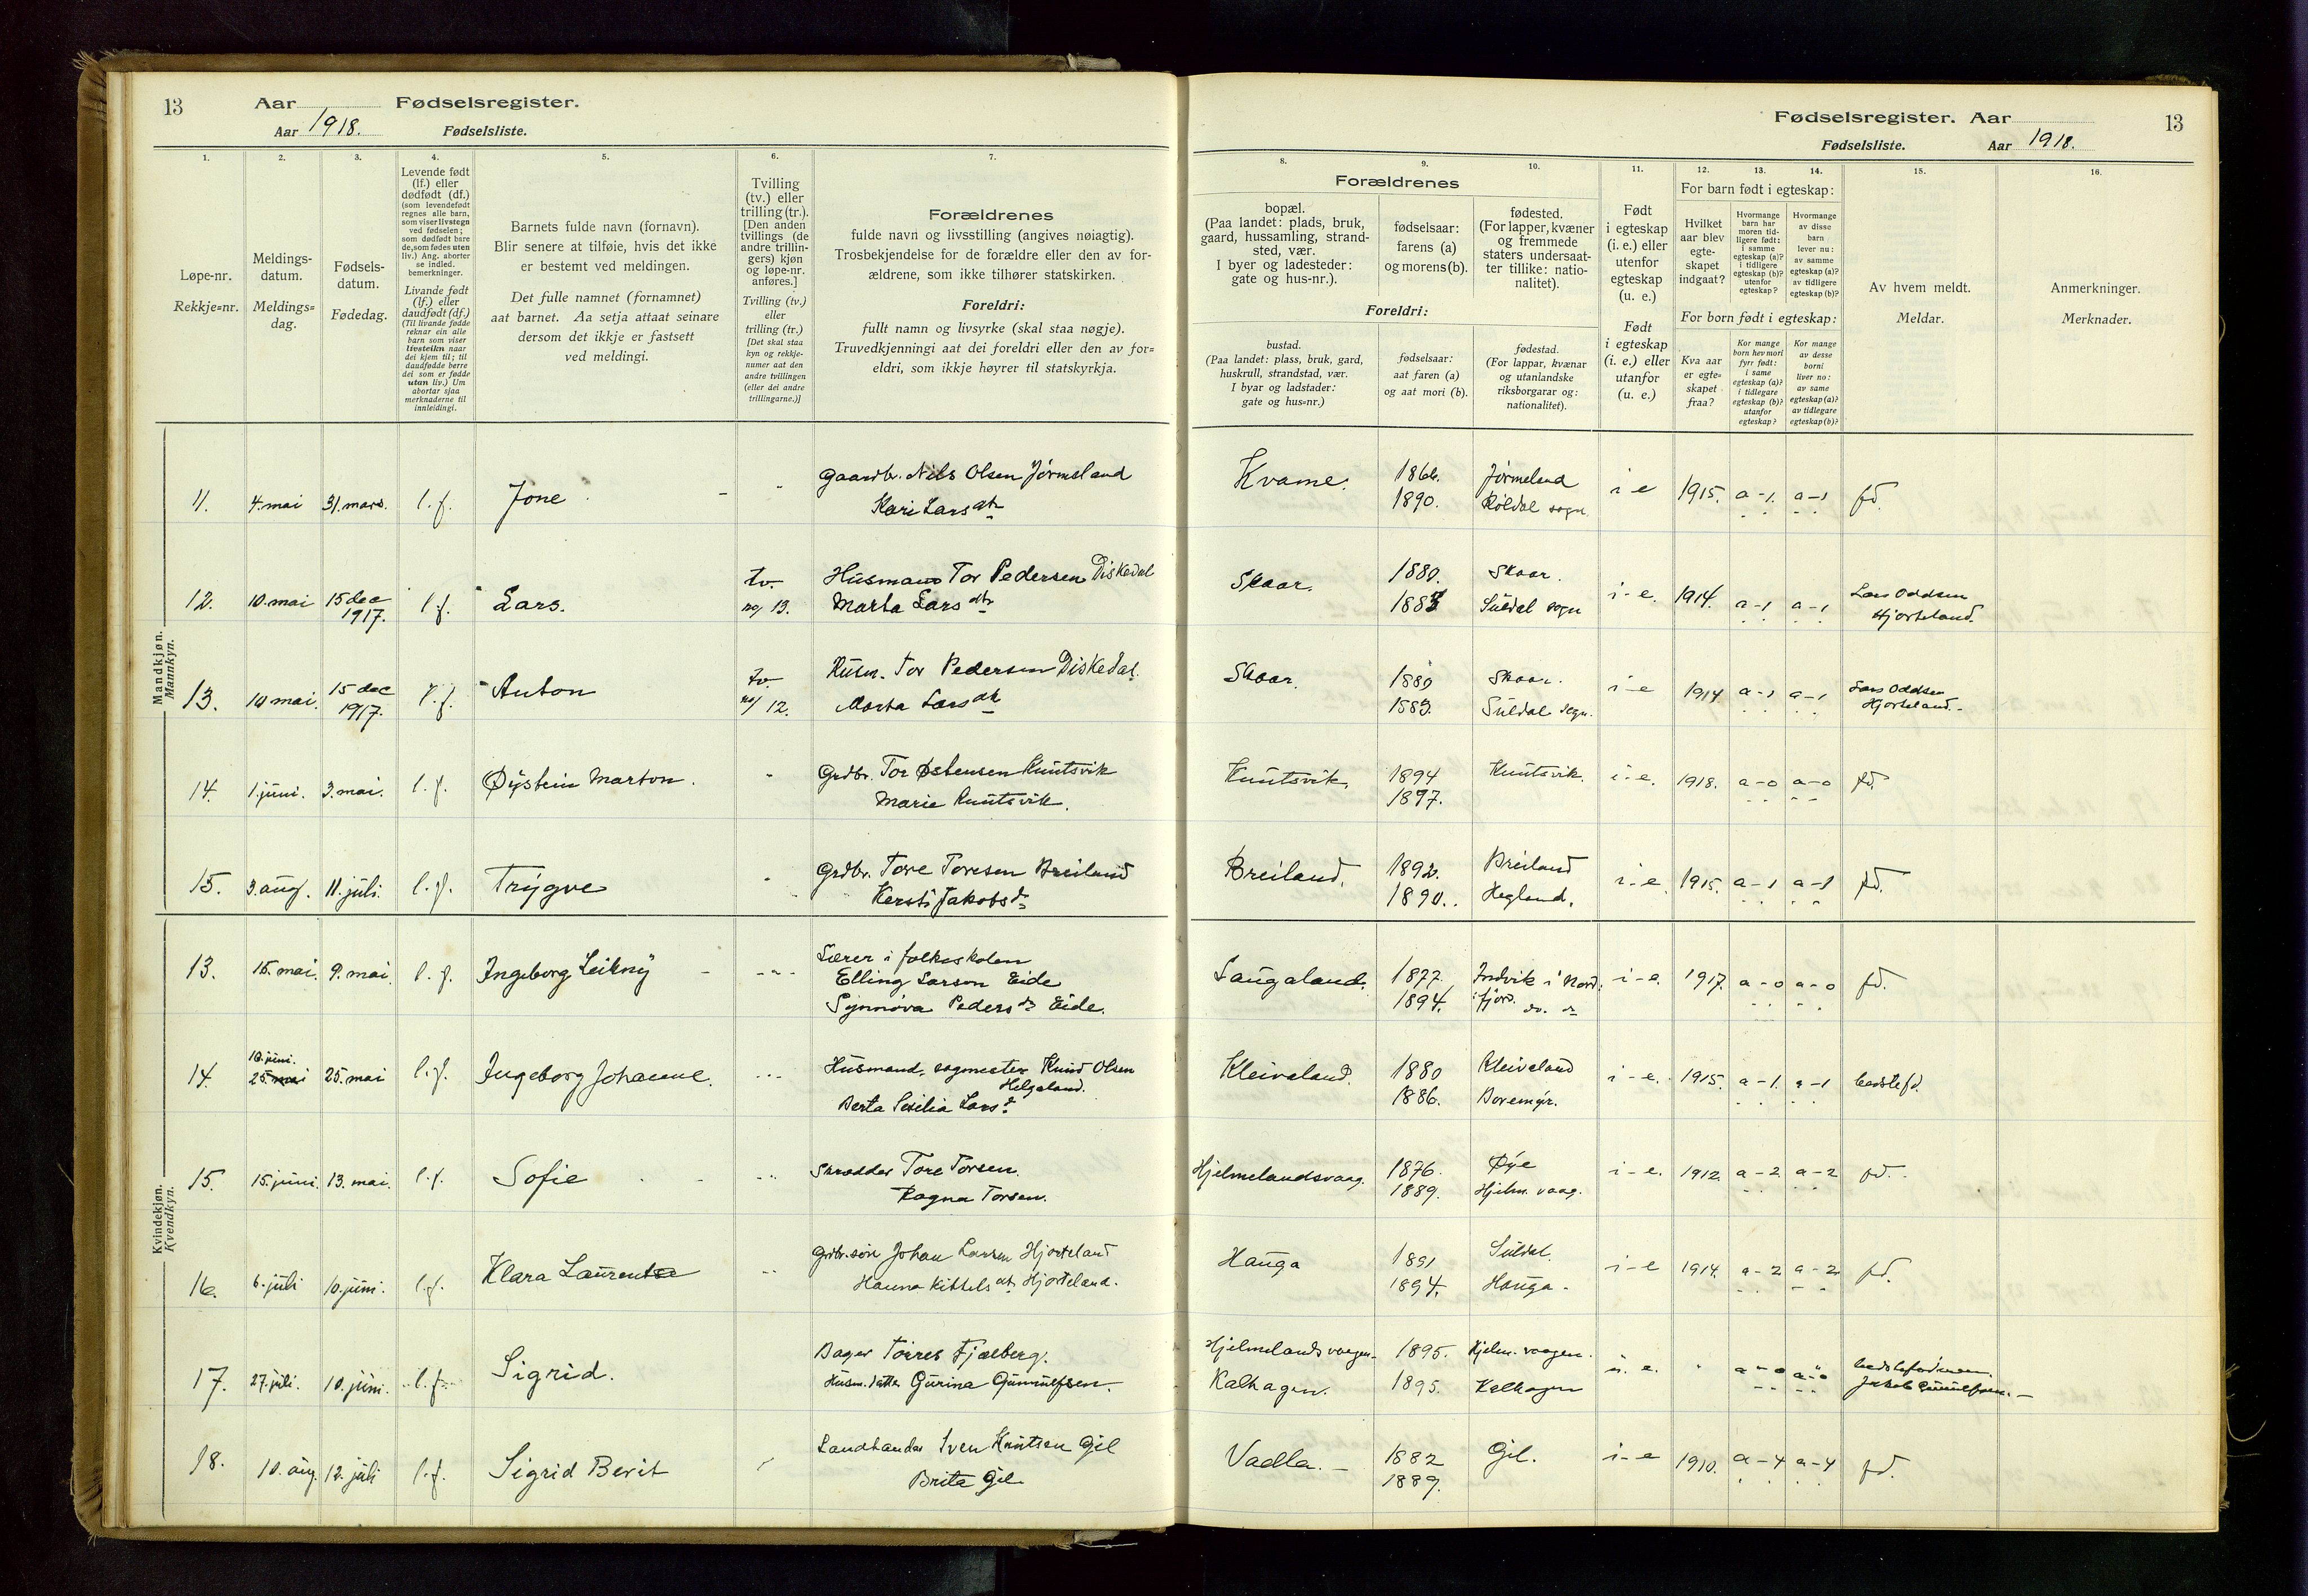 13 Aar Fødselsregister.
Aar 1918. Fødselsliste.
Fødselsregister. Aar 13
Fødselsliste. Aar 1918.
1. 2. 3. 4. 5. 6. 7. 8. 9. 10. 11. 12. 13. 14. 15. 16.
Løpe-nr.
Rekkje=nr.
Meldings-
datum.
Meldings=
dag.
Fødsels-
datum.
Fødedag.
Levende født
(lf.) eller
dødfødt (df.)
(som levendefødt
regnes alle barn,
som viser livstegn
ved fødselen;
som dødfødt bare
de, som fødes uten
liv.) Ang. aborter
se indled.
bemerkninger.
Livande født
(lf.) eller
daudfødt (df.)
(Til livande fødde
reknar ein alle
barn som viser
livsteikn naar
dei kjem til; til
daudfødde berre
dei som er fødde
utan liv.) Um
abortar sjaa
merknaderne til
innleidingi.
Barnets fulde navn (fornavn).
Blir senere at tilføie, hvis det ikke
er bestemt ved meldingen.
Det fulle namnet (fornamnet)
aat barnet. Aa setja attaat seinare
dersom det ikkje er fastsett
ved meldingi.
Tvilling
(tv.) eller
trilling (tr.).
[Den anden
tvillings (de
andre trillin-
gers) kjøn
og løpe-nr.
anføres.]
Tvilling (tv.)
eller
trilling (tr.)
[Det skal staa
kyn og rekkje-
numer aat den
andre tvillingen
(eller dei andre
trillingarne.)]
Forældrenes
fulde navn og livsstilling (angives nøiagtig).
Trosbekjendelse for de forældre eller den av for-
ældrene, som ikke tilhører statskirken.
Foreldri:
fullt namn og livsyrke (skal staa nøgje).
Truvedkjenningi aat dei foreldri eller den av for=
eldri, som ikkje høyrer til statskyrkja.
Forældrenes
bopæl.
(Paa landet: plads, bruk,
gaard, hussamling, strand-
sted, vær.
I byer og ladesteder:
gate og hus-nr.).
fødselsaar:
farens (a)
og morens (b).
fødested.
(For lapper, kvæner
og fremmede
staters undersaat-
ter tillike: natio-
nalitet).
Foreldri:
bustad.
(Paa landet: plass, bruk, gard,
huskrull, strandstad, vær.
I byar og ladstader:
gate og hus=nr.)
fødselsaar:
aat faren (a)
og aat mori (b).
fødestad.
(For lappar, kvænar
og utanlandske
riksborgarar og:
nationalitet).
Født
i egteskap
(i. e.) eller
utenfor
egteskap
(u. e.)
Født
i egteskap
(i. e.) eller
utanfor
(u. e.)
For barn født i egteskap:
Hvilket
aar blev
egte-
skapet
indgaat?
Hvormange
barn har
moren tid-
ligere født:
i samme
egteskap (a)?
i tidligere
egteskap (b)?
utenfor
egteskap?
Hvormange
av disse
barn
lever nu:
av samme
egteskap (a)?
av tidligere
egteskap (b)?
For born født i egteskap:
Kva aar
er egte=
skapet
fraa?
Kor mange
born hev mori
fyrr født:
i same
egteskap (a)?
i tidlegare
egteskap (b)?
utanfor
egteskap?
Kor mange
av desse
borni
liver no:
av same
egteskap (a)?
av tidlegare
egteskap (b)?
Av hvem meldt.
Meldar.
Anmerkninger.
Merknader.
Mandkjøn.
Mannkyn.
11. 4. mai 31. mars. l. f. Jone - Gaardbr. Nils Olsen Jörmeland Kvame. 1866. Jörmeland i e 1915. a-1. a-1 fd.
Kari Lars dtr 1890. Röldal sogn
12. 10. mai 15 dec l. f. Lars. tv. Husmann Tor Pedersen Diskedal Skaar. 1880. Skaar. i-e. 1914. a-1 a-1 Lars Oddsen
1917. no/ 13. Marta Lars dtr 1883 Suldal sogn Hjorteland.
13. 10 mai. 15 dec l. f. Anton tv. Husm. Tor Pedersen Diskedal. Skaar. 1880 Skaar. i-e 1914 a-1 a-1 Lars Oddsen
1917. no/ 12. Marta Lars dtr 1883. Suldal sogn. Hjorteland.
14. 1. juni. 3. mai. l. f. Øystein Marton. Grdbr. Tor Østensen Knutsvik Knutsvik. 1894 Knutsvik. i-e. 1918. a-0 a-0 fd.
Marie Knutsvik. 1897.
15. 3. aug. 11. juli. l. f. Trygve Grdbr. Tore Toresen Breiland Breiland. 1892. Breiland i-e. 1915. a-1 a-1 fd.
Kersti Jakobs d 1890. Hegland.
Kvindekjøn.
Kvendkyn.
13. 15. mai. 9. mai l. f. Ingeborg Leikny Lærer i folkeskolen
Elling Larsen Eide Laugaland. 1877. Indvik i Nord. i-e. 1917. a-0 a-0 fd.
Synnöva Peders d Eide. 1894. fjord. do. do
14. 10. juni. 25. mai l. f. Ingeborg Johanne. Husmand, sagmester Knud Olsen Kleivaland. 1880 Kleivaland i-e. 1915. a-1. a-1 bedstefd.
25. mai Helgaland.
Berta Sesilia Lars d 1886. Boremyr.
15. 15. juni. 13. mai. l. f. Sofie Skrædder Tore Torsen. Hjelmelandsvaag. 1876. Øye i-e. 1912. a-2 a-2 fd.
Ragna Torsen. 1889. Hjelm. vaag.
16. 6. juli 10. juni. l. f. Klara Laurentse Grdbr. søn Johan Larsen Hjorteland Hauga 1891 Suldal. i-e 1914. a-2 a-2 fd.
Hanna Kittels dt. Hjorteland. 1894. Hauga.
17. 27. juli. 10. juni. l. f. Sigrid. Bager Torres Fjælberg. Hjelmelandsvaagen. 1895. Hjelm. vaagen. u. e. " a-0 a-0 bedstefd.
Husm. datter Gurina Gunnulfsen. Kalhagen. 1895. Kalhagen Jakob Gunnulfsen.
18. 10. aug. 12. juli l. f. Sigrid Berit Landhandler Sven Knutsen Gil Vadla. 1882 Gil. i-e 1910. a-4 a-4 fd.
Brita Gil 1889.